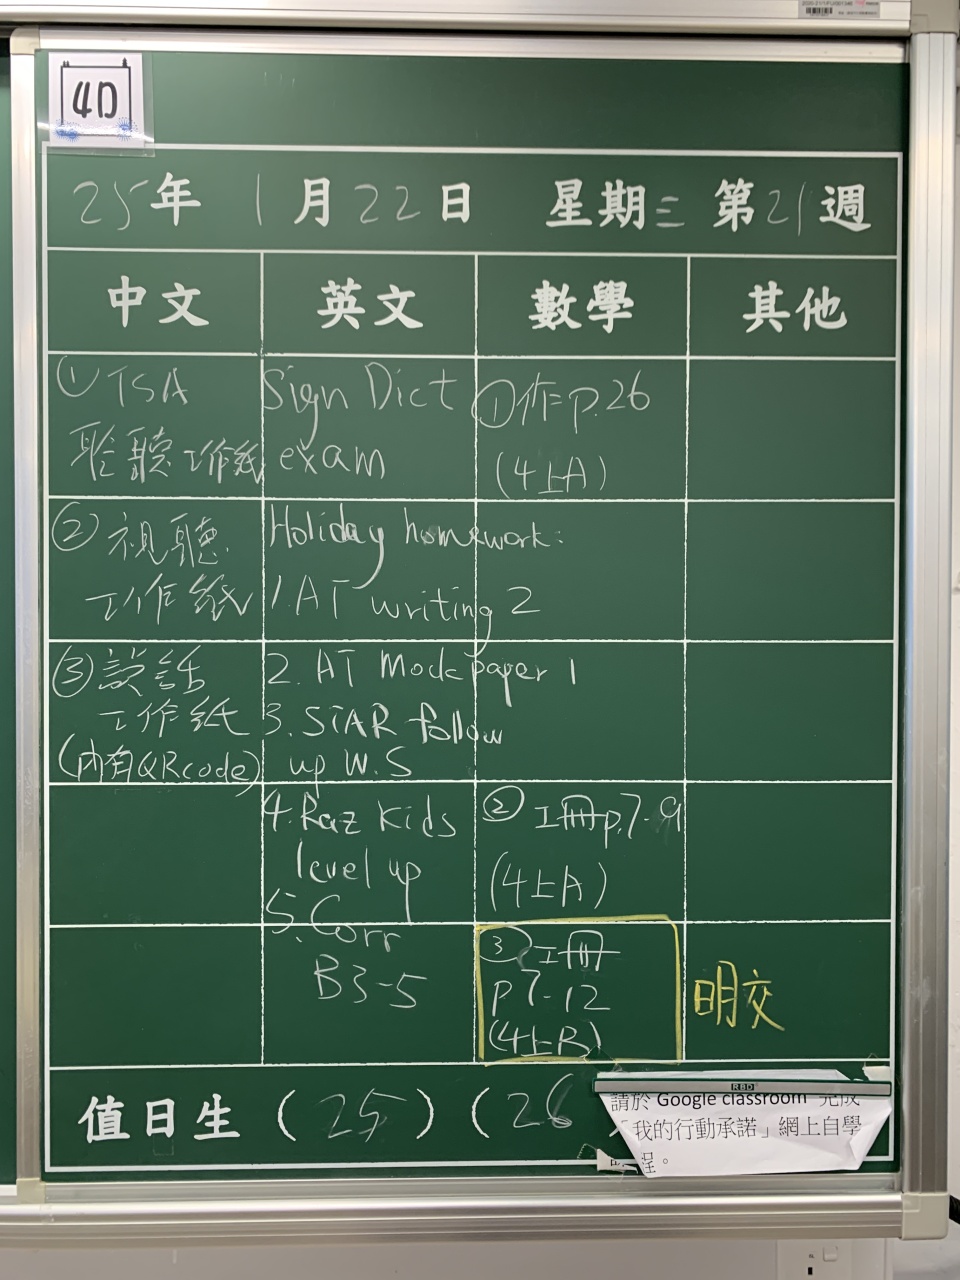 4D
25年 1月22日 星期三 第21週
中文 英文 數學 其他
① TSA
聆聽工作紙
② 視聽
工作紙
③ 說話
工作紙
(內有QRcode)
Sign Dict
exam
Holiday homework:
1. AT writing 2
2. AT Mock paper 1
3. STAR follow
up W.S
4. Raz Kids
level up
5. Corr
B3-5
① 作p.26
(4上A)
② 工冊p.7-9
(4上A)
③ 工冊
p7-12
(4上B)
明交
值日生 (25) (26
RBD
請於 Google classroom 完成
「我的行動承諾」網上自學
程。